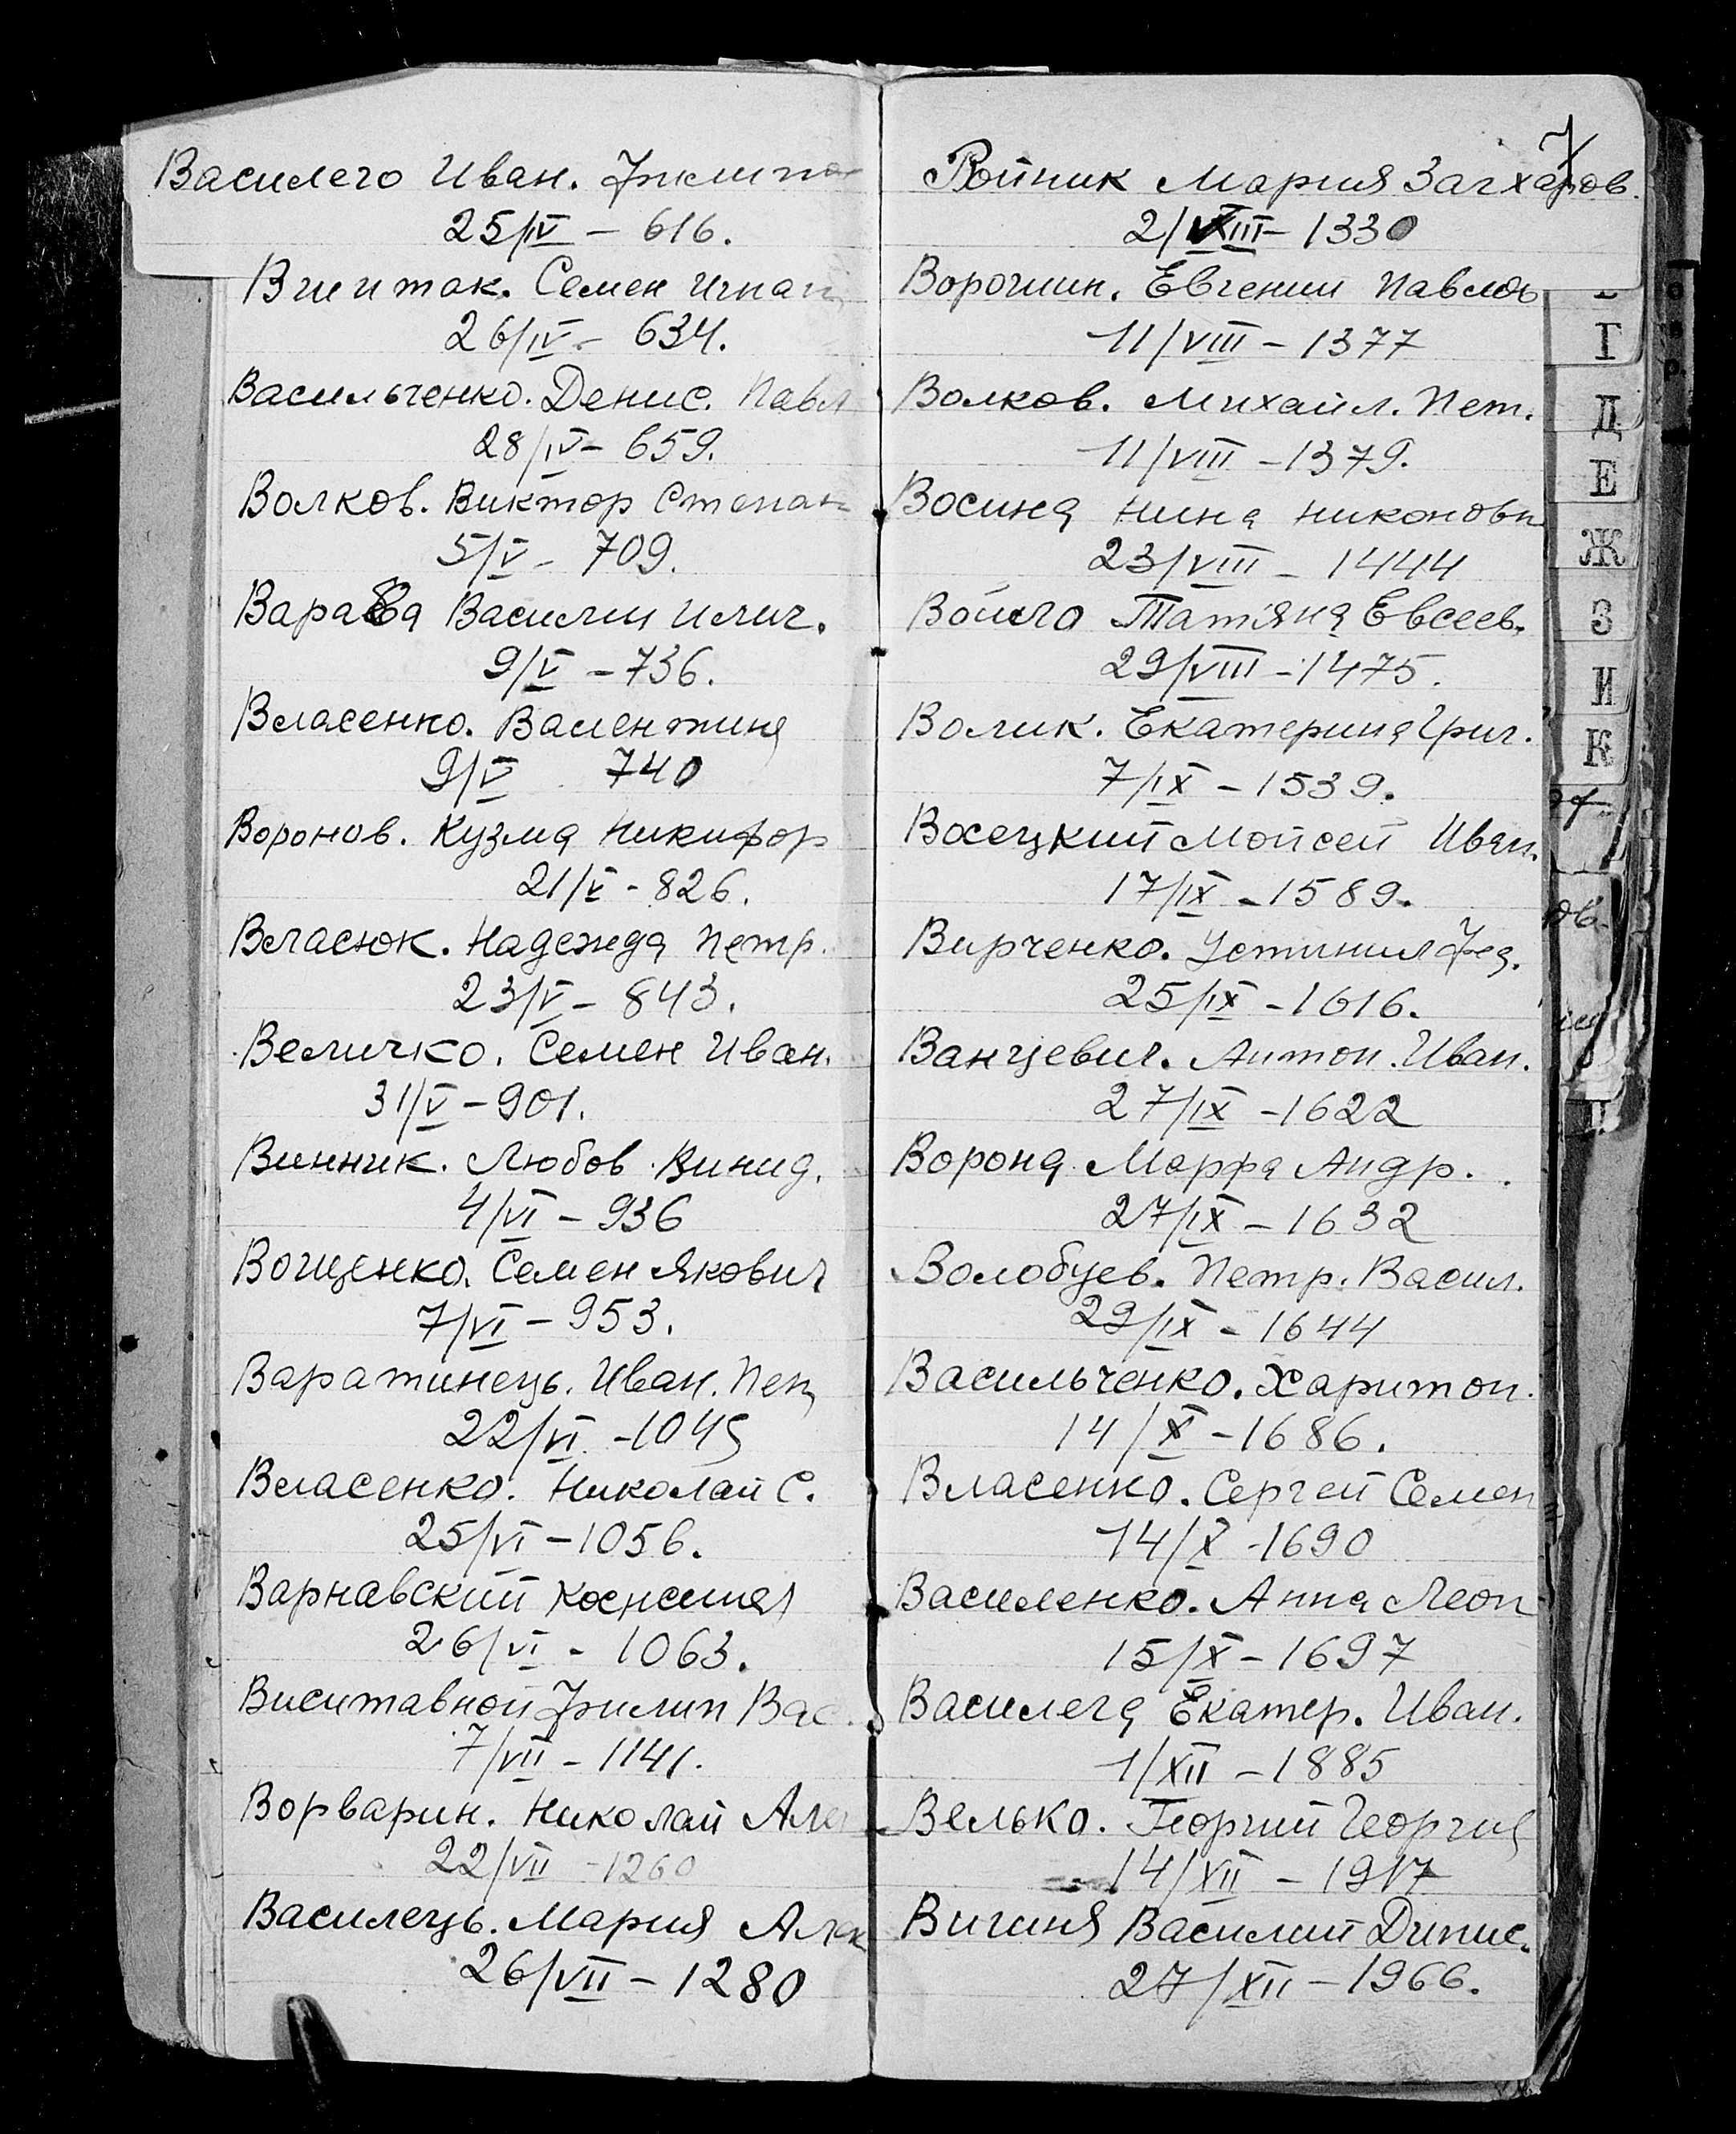 Василего Иван. Филипо
25/IV – 616.
Семен Игнат
26/IV – 634.
Васильченко. Денис. Павл
28/IV – 659.
Волков. Виктор Степан
5/V – 709.
Василии Илич.
9/V – 736.
Власенко. Валентина
9/V 740
Воронов. Кузма Никифор
21/V – 826.
Власюк. Надежда Петр.
23/V – 843.
Величко. Семен Иван.
31/V – 901.
Винник. Любов. Винид.
4/VI – 936
Вощенко. Семен Якович
7/VI – 953.
Варатинець. Иван. Пет
22/VI – 1045
Власенко. Николай С.
25/VI – 1056.
Варнавский
26/VI – 1063.
Виситавной Филип Вас.
7/VII – 1141.
Ворварин. Николай Але
22/VII – 1260
Василець. Мария Алек
26/VII – 1280
7
Войник Мария Загхаров.
2/VIII – 1330
Ворочиин. Евгении Павлов
11/VIII – 1377
Волков. Михайл. Пет.
11/VIII – 1379.
Восина Нина Никоновн
23/VIII – 1444
Войло Татіяна Евсеев.
29/VIII – 1475.
Волик. Екатерина Григ.
7/IX – 1539.
Восецкий Мойсей Иван.
17/IX – 1589.
Вирченко. Устиния Фед.
25/IX – 1616.
Ванцевич. Антон. Иван.
27/IX – 1622
Ворона Марфа Андр.
27/IX – 1632
Волобуев. Петр. Васил.
29/IX – 1644
Васильченко. Харитон.
14/X – 1686.
Власенко. Сергей Семен
14/X – 1690
Василенко. Анна Леон
15/X – 1697
Василега Екатер. Иван.
1/XII – 1885
Велько. Георгий Георгие
14/XII – 1917
Вигиня Василий Динис.
27/XII – 1966.
Г
Д
Е
Ж
З
И
К